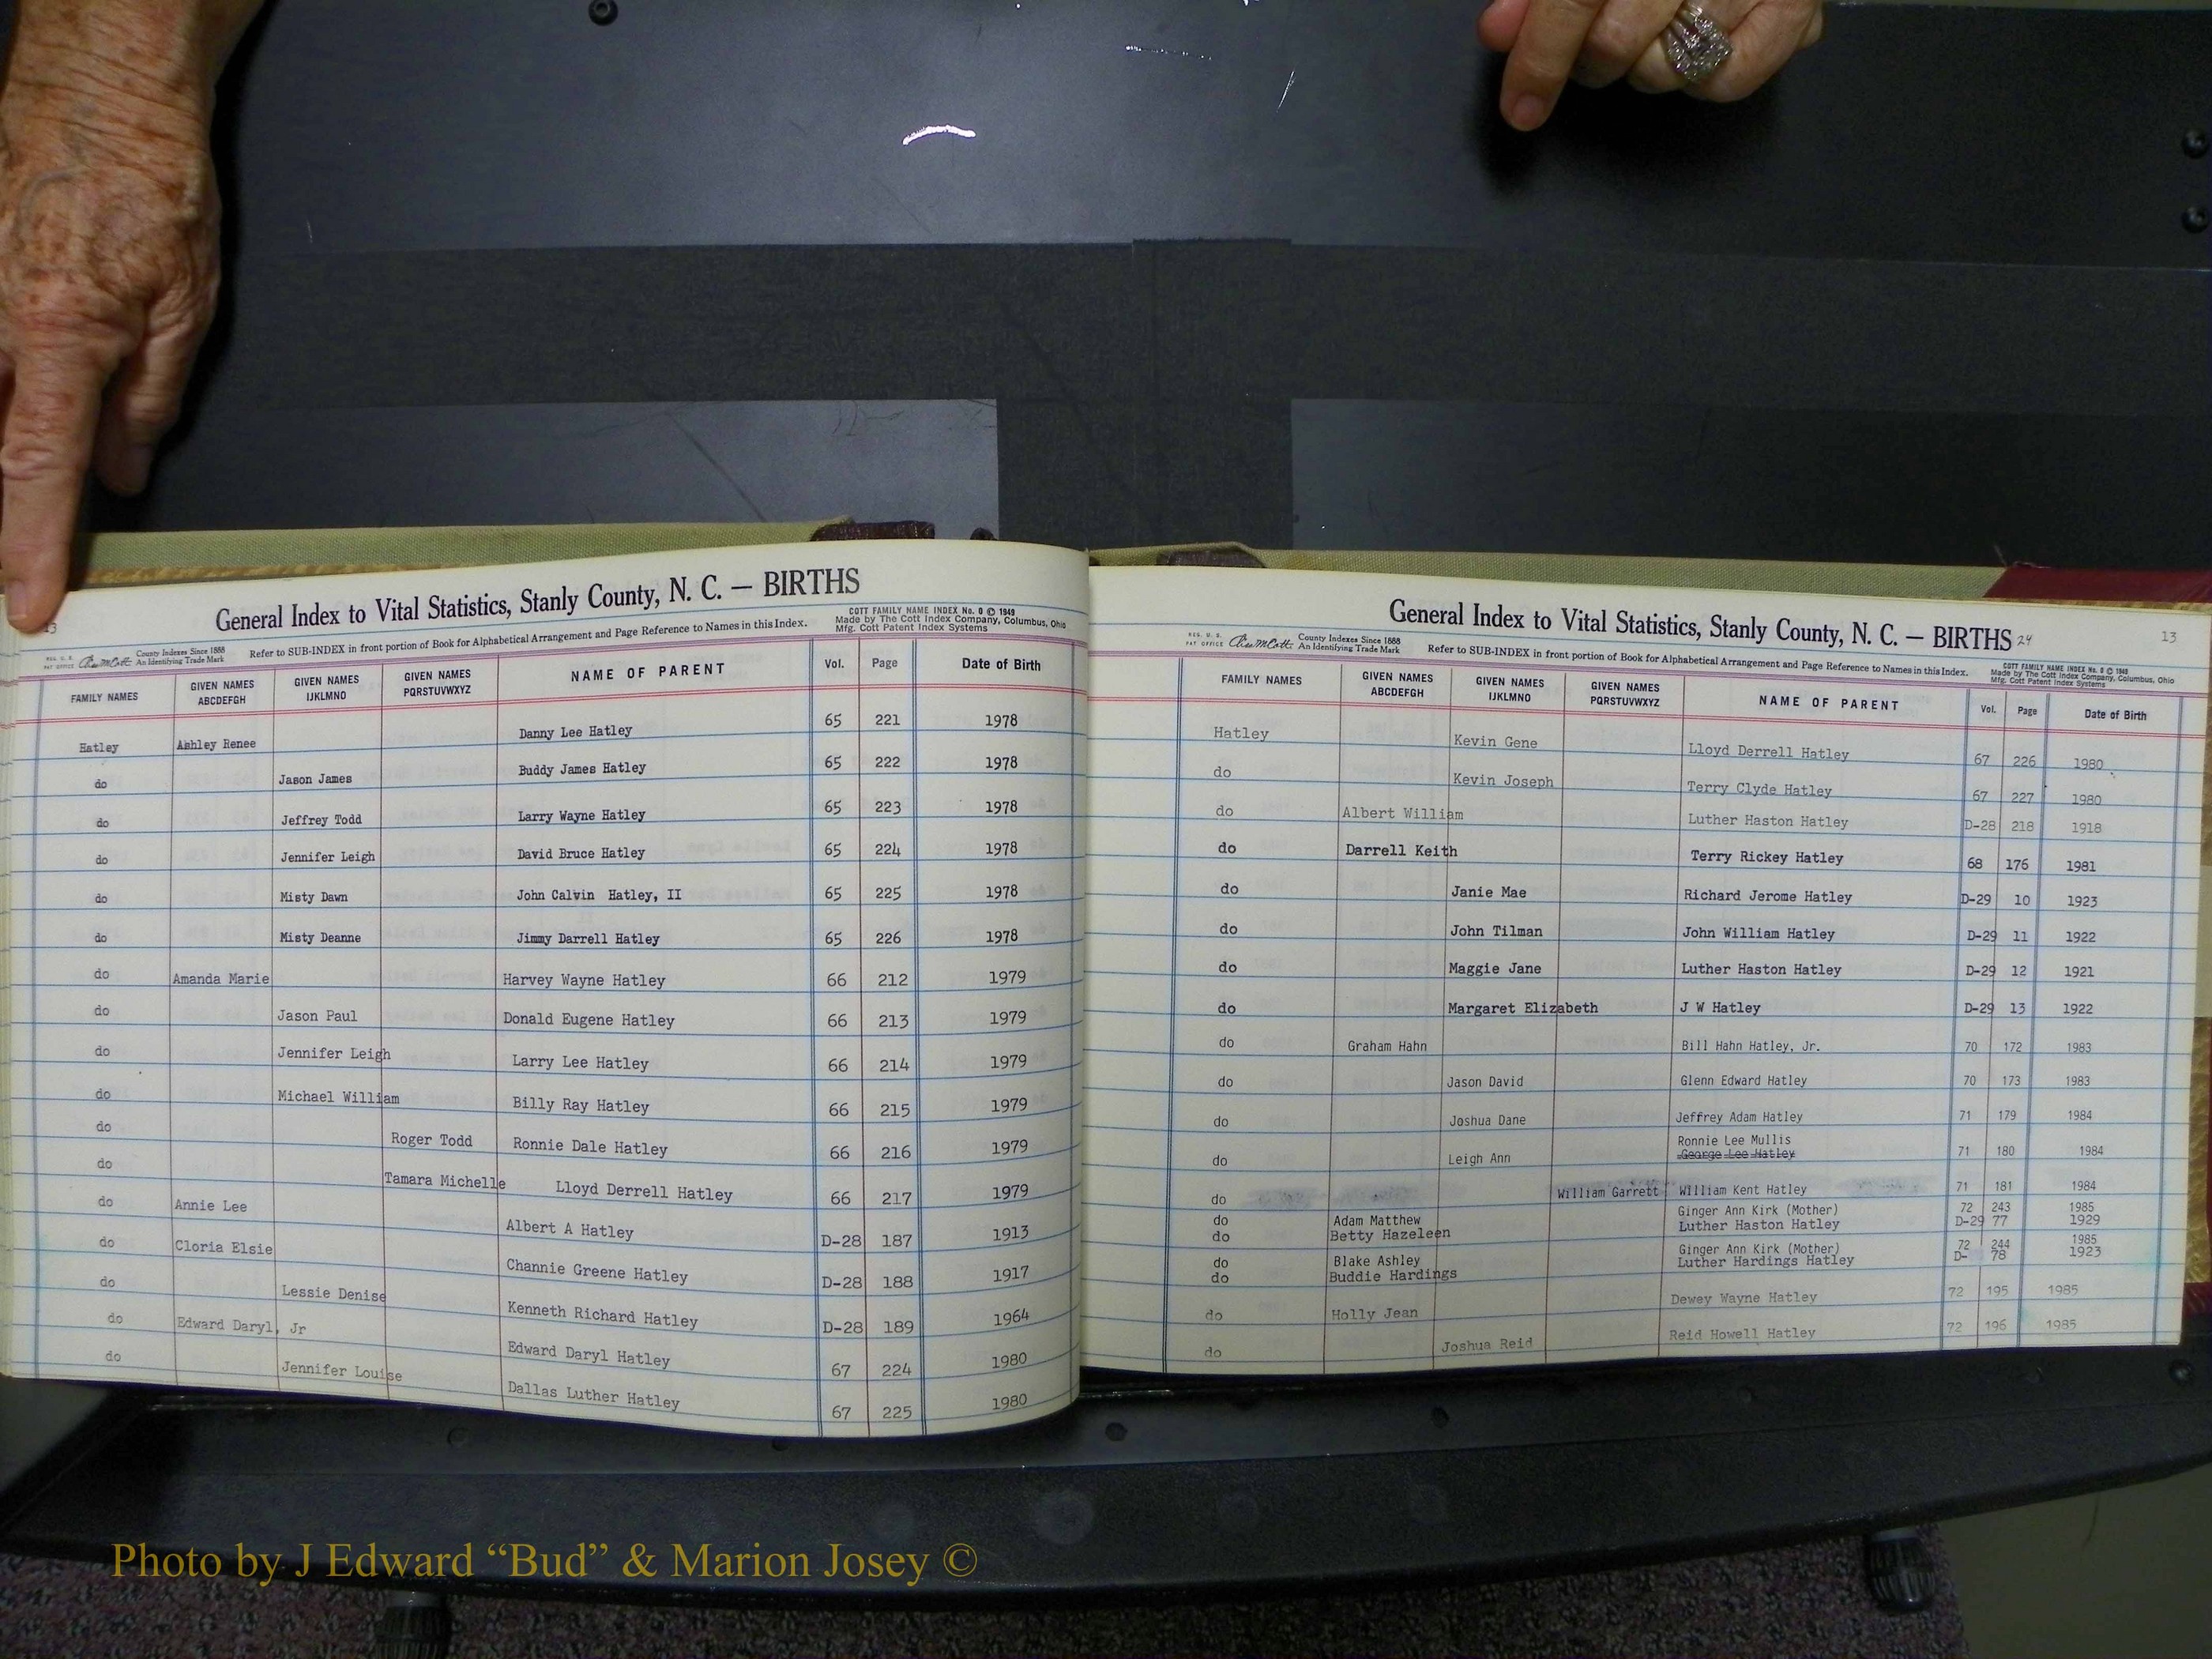 13
General Index to Vital Statistics, Stanly County, N. C. — BIRTHS
COTT FAMILY NAME INDEX No. 8 © 1949
Made by The Cott Index Company, Columbus, Ohio
Mfg. Cott Patent Index Systems
REG. U. S. PAT OFFICE County Indexes Since 1888 An Identifying Trade Mark Refer to SUB-INDEX in front portion of Book for Alphabetical Arrangement and Page Reference to Names in this Index.
FAMILY NAMES GIVEN NAMES ABCDEFGH GIVEN NAMES IJKLMNO GIVEN NAMES PQRSTUVWXYZ NAME OF PARENT Vol. Page Date of Birth
Hatley Ashley Renee Danny Lee Hatley 65 221 1978
do Jason James Buddy James Hatley 65 222 1978
do Jeffrey Todd Larry Wayne Hatley 65 223 1978
do Jennifer Leigh David Bruce Hatley 65 224 1978
do Misty Dawn John Calvin Hatley, II 65 225 1978
do Misty Deanne Jimmy Darrell Hatley 65 226 1978
do Amanda Marie Harvey Wayne Hatley 66 212 1979
do Jason Paul Donald Eugene Hatley 66 213 1979
do Jennifer Leigh Larry Lee Hatley 66 214 1979
do Michael William Billy Ray Hatley 66 215 1979
do Roger Todd Ronnie Dale Hatley 66 216 1979
do Tamara Michelle Lloyd Derrell Hatley 66 217 1979
do Annie Lee Albert A Hatley D-28 187 1913
do Cloria Elsie Channie Greene Hatley D-28 188 1917
do Lessie Denise Kenneth Richard Hatley D-28 189 1964
do Edward Daryl, Jr Edward Daryl Hatley 67 224 1980
do Jennifer Louise Dallas Luther Hatley 67 225 1980
General Index to Vital Statistics, Stanly County, N. C. — BIRTHS 24 13
REG. U. S. PAT OFFICE County Indexes Since 1888 An Identifying Trade Mark Refer to SUB-INDEX in front portion of Book for Alphabetical Arrangement and Page Reference to Names in this Index.
COTT FAMILY NAME INDEX No. 8 © 1949
Made by The Cott Index Company, Columbus, Ohio
Mfg. Cott Patent Index Systems
FAMILY NAMES GIVEN NAMES ABCDEFGH GIVEN NAMES IJKLMNO GIVEN NAMES PQRSTUVWXYZ NAME OF PARENT Vol. Page Date of Birth
Hatley Kevin Gene Lloyd Derrell Hatley 67 226 1980
do Kevin Joseph Terry Clyde Hatley 67 227 1980
do Albert William Luther Haston Hatley D-28 218 1918
do Darrell Keith Terry Rickey Hatley 68 176 1981
do Janie Mae Richard Jerome Hatley D-29 10 1923
do John Tilman John William Hatley D-29 11 1922
do Maggie Jane Luther Haston Hatley D-29 12 1921
do Margaret Elizabeth J W Hatley D-29 13 1922
do Graham Hahn Bill Hahn Hatley, Jr. 70 172 1983
do Jason David Glenn Edward Hatley 70 173 1983
do Joshua Dane Jeffrey Adam Hatley 71 179 1984
Ronnie Lee Mullis
do Leigh Ann George Lee Hatley 71 180 1984
do William Garrett William Kent Hatley 71 181 1984
do Adam Matthew Ginger Ann Kirk (Mother) 72 243 1985
do Betty Hazeleen Luther Haston Hatley D-29 77 1929
do Blake Ashley Ginger Ann Kirk (Mother) 72 244 1985
do Buddie Hardings Luther Hardings Hatley D- 78 1923
do Holly Jean Dewey Wayne Hatley 72 195 1985
do Joshua Reid Reid Howell Hatley 72 196 1985
Photo by J Edward “Bud” & Marion Josey ©